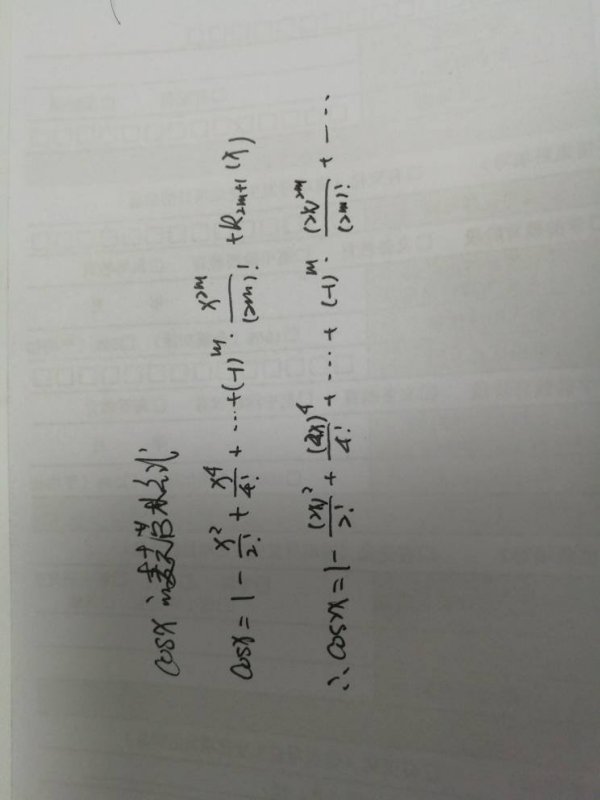 cosx的麦克劳林公式
cosx = 1 - x²/2! + x⁴/4! + ⋯ + (-1)^m · x^2m/(2m)! + R_2m+1 (x)
∴ cos2x = 1 - (2x)²/2! + (2x)⁴/4! + ⋯ + (-1)^m · (2x)^2m/(2m)! + ⋯